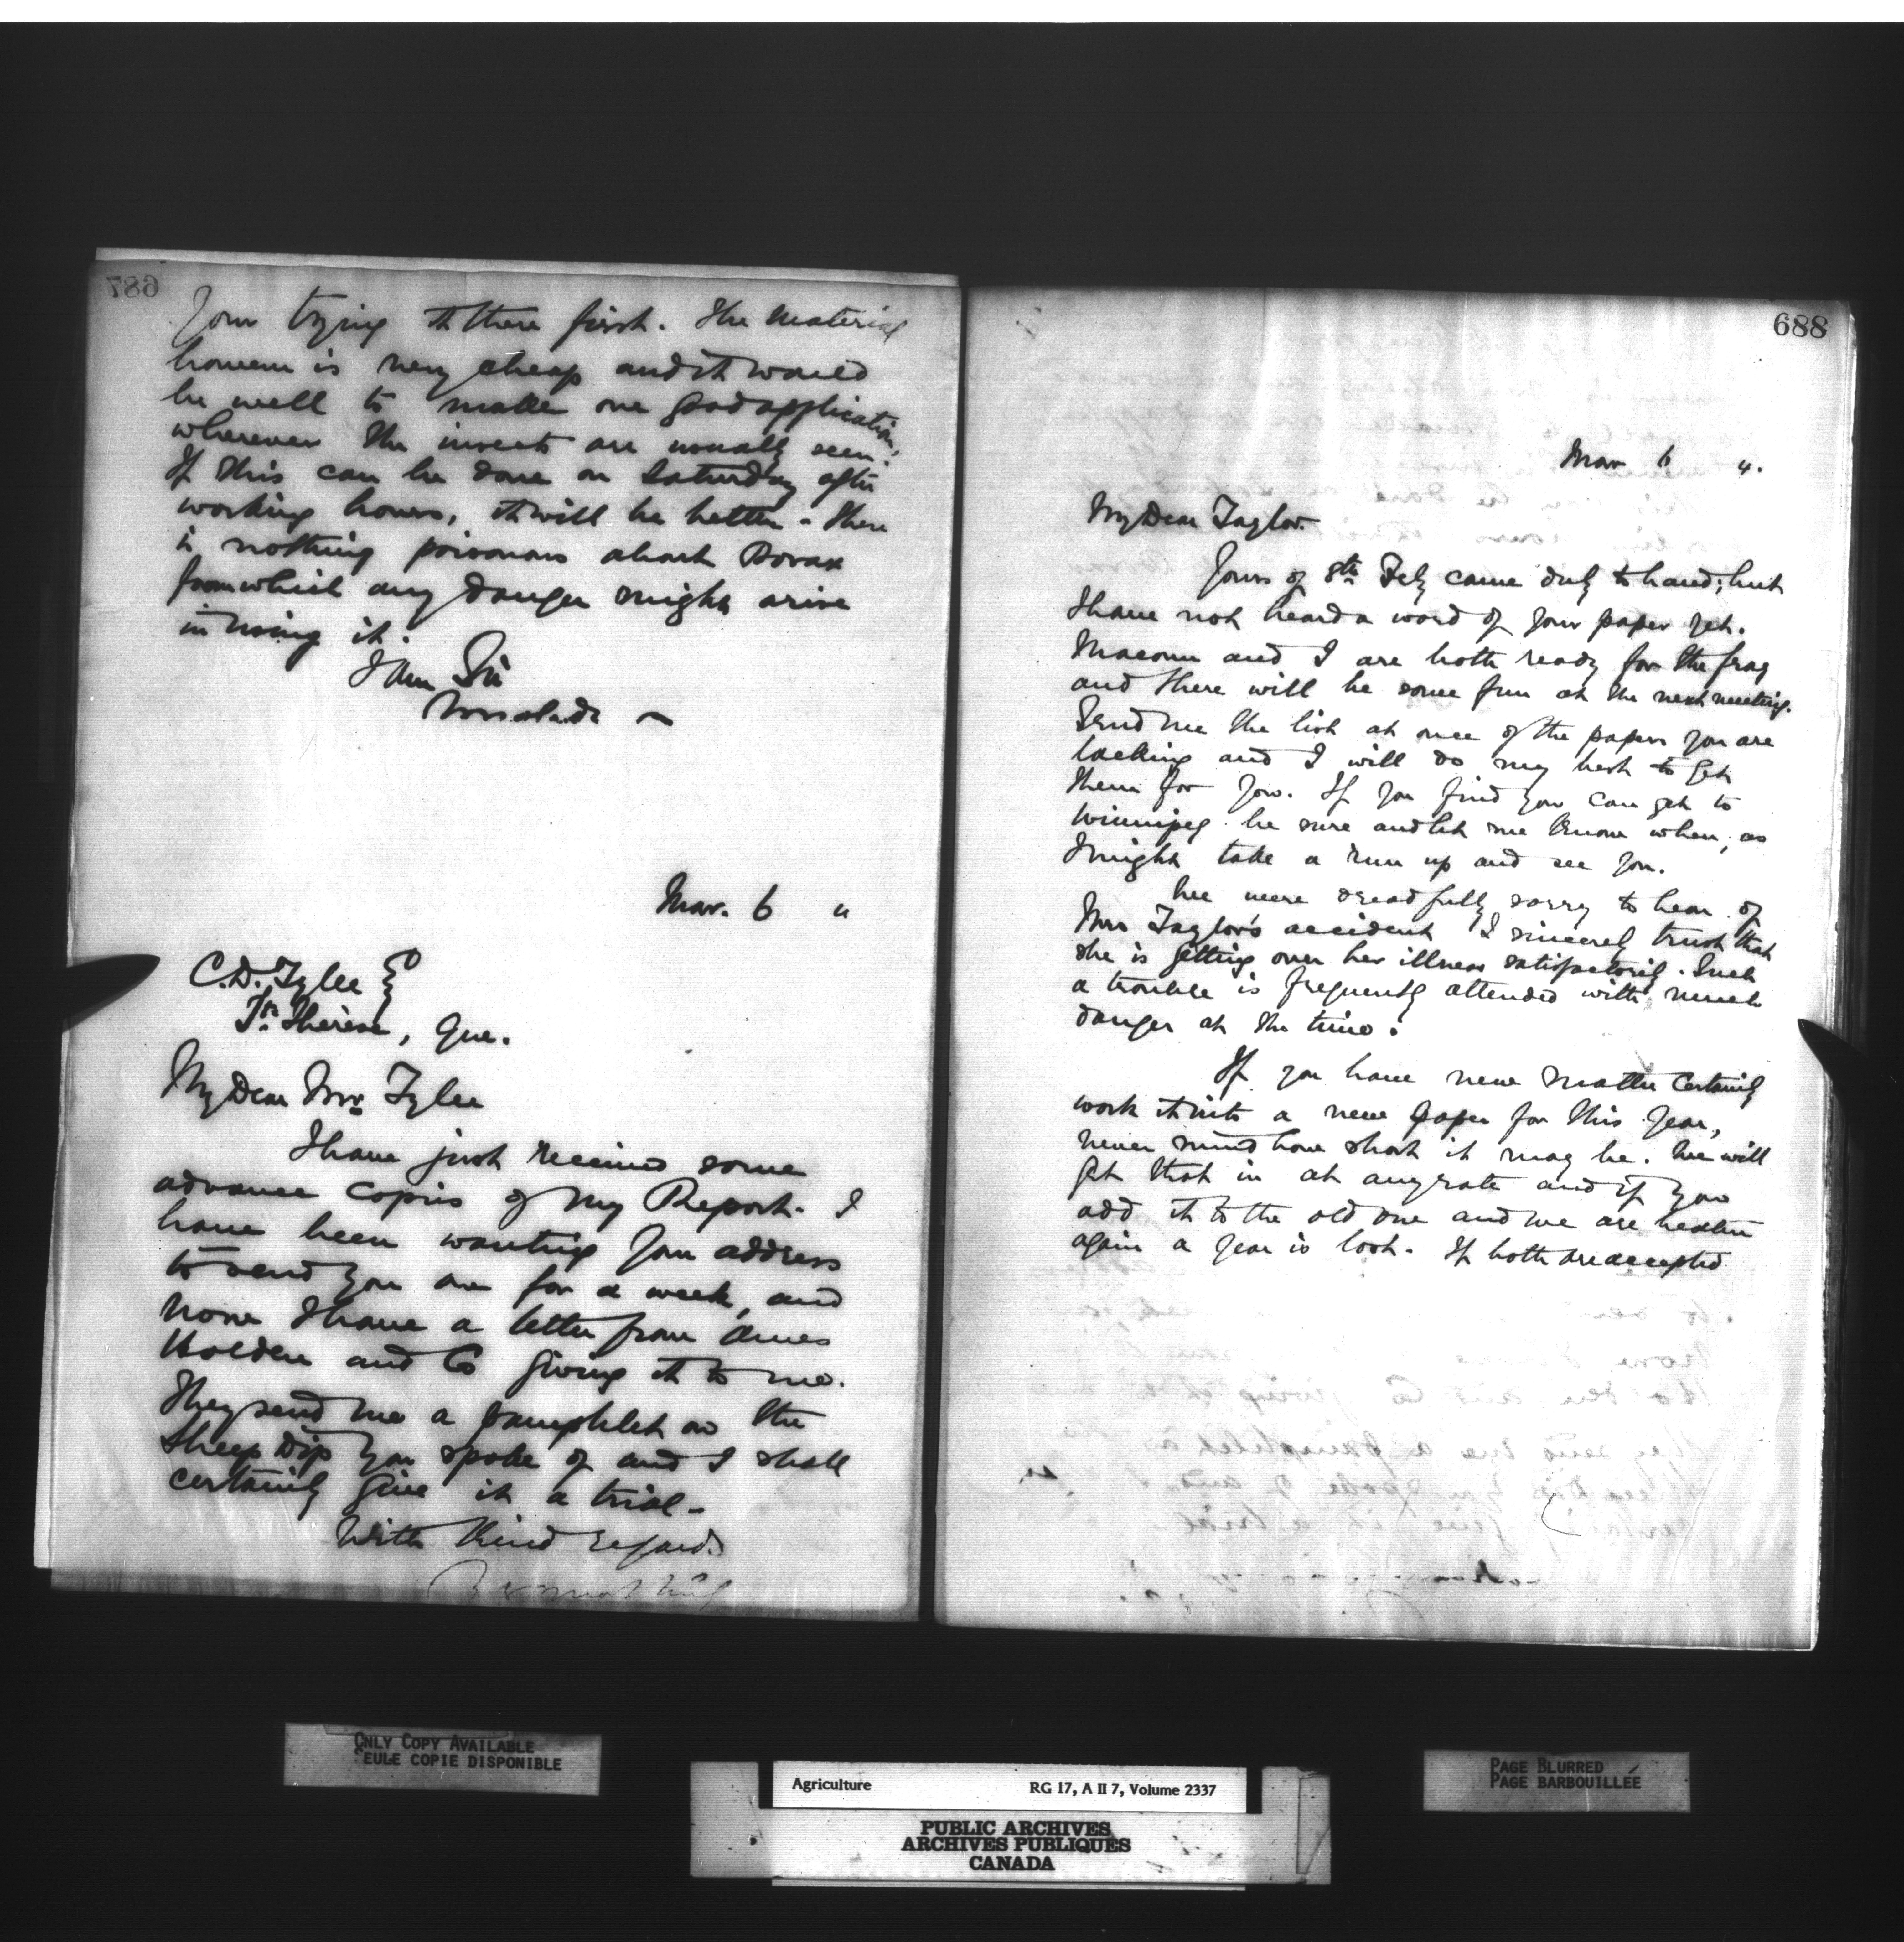 687
your trying it there first. The material
however is very cheap and it would
be well to make one good application,
wherever the insects are usually seen.
If this can be done on Saturday after
working hours, it will be better. There
is nothing poisonous about Borax
from which any danger might arise
in using it.
I am Sir
Mar. 6 "
C.D. Tylee
Ste Thérèse, Que.
My Dear Mr Tylee
I have just received some
advance copies of my Report. I
have been wanting your address
to send you one for a week, and
now I have a letter from Ames
Holden and Co giving it to me.
They send me a pamphlet on the
Sheep Dip you spoke of and I shall
certainly give it a trial.
With kind regards
688
Mar 6 4.
My Dear Taylor.
Yours of 8th Feby came duly to hand; but
I have not heard a word of your paper yet.
Macoun and I are both ready for the fray
and there will be some fun at the next meeting.
Send me the list at once of the papers you are
lacking and I will do my best to get
them for you. If you find you can get to
Winnipeg be sure and let me know when, as
I might take a run up and see you.
We were dreadfully sorry to hear of
Mrs Taylor's accident I sincerely trust that
she is getting over her illness satisfactorily. Such
a trouble is frequently attended with much
danger at the time.
If you have new matter certainly
work it into a new paper for this year,
never mind how short it may be. We will
get that in at any rate and if you
add it to the old one and we are beaten
again a year is lost. If both are accepted
ONLY COPY AVAILABLE
SEULE COPIE DISPONIBLE
Agriculture RG 17, A II 7, Volume 2337
PUBLIC ARCHIVES
ARCHIVES PUBLIQUES
CANADA
PAGE BLURRED
PAGE BARBOUILLÉE